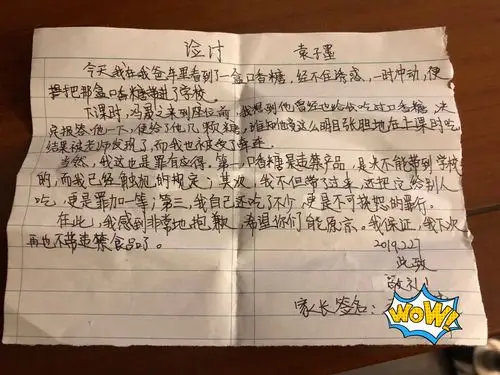 检讨 袁子墨
今天我在我爸车里看到了一盒口香糖,经不住诱惑,一时冲动,便
把那盒口香糖带进了学校。
下课时,冯晟之来到座位前,我想到他曾经也给我吃过口香糖,决
定报答他一下,便给了他几颗糖,谁知他竟这么明目张胆地在上课时吃,
结果被老师发现了,而我也被受了牵连。
当然,我这也是罪有应得。第一,口香糖是违禁产品,是决不能带到学校
的,而我已经触犯的规定;其次,我不但带了过来,还把它给别人
吃,更是罪加一等;第三,我自己还吃了不少,更是不可饶恕的罪行。
在此,我感到非常地抱歉,希望你们能原谅。我保证,我下次
再也不带违禁食品了。
2019.2.27
此致
敬礼!
家长签名:
WOW!